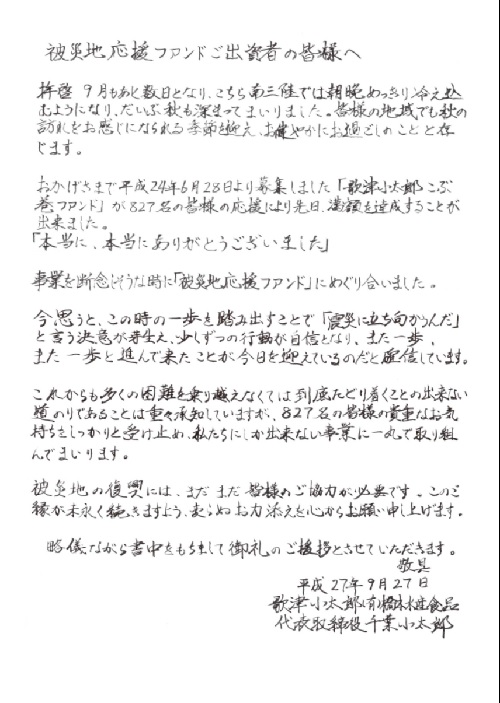 被災地応援ファンドご出資者の皆様へ
拝啓 9月もあと数日となり、こちら南三陸では朝晩めっきり冷え込
むようになり、だいぶ秋も深まってまいりました。皆様の地域でも秋の
訪れをお感じになられる季節を迎え、お健やかにお過ごしのことと存
じます。
おかげさまで平成24年6月28日より募集しました「歌津小太郎こぶ
巻ファンド」が827名の皆様の応援により先日、満額を達成することが
出来ました。
「本当に、本当にありがとうございました」
事業を断念しそうな時に「被災地応援ファンド」にめぐり合いました。
今、思うと、この時の一歩を踏み出すことで「震災に立ち向かうんだ」
と言う決意が芽生え、少しずつの行動が自信となり、また一歩、
また一歩と進んで来たことが今日を迎えているのだと確信しています。
これからも多くの困難を乗り越えなくては到底たどり着くことの出来ない
道のりであることは重々承知していますが、827名の皆様の貴重なお気
持ちをしっかりと受け止め、私たちにしか出来ない事業に一丸で取り組
んでまいります。
被災地の復興には、まだまだ皆様のご協力が必要です。このご
縁が末永く続きますよう、変らぬお力添えを心からお願い申し上げます。
略儀ながら書中をもちまして御礼のご挨拶とさせていただきます。
敬具
平成27年9月27日
歌津小太郎(有)橋本水産食品
代表取締役千葉小太郎